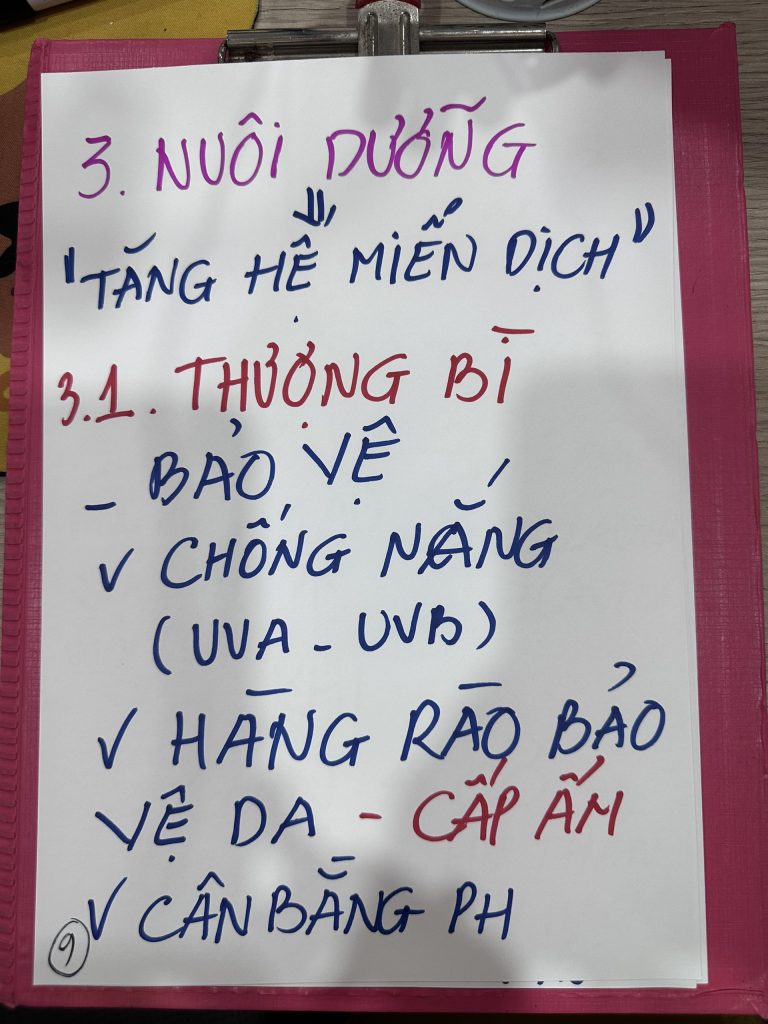 3. NUÔI DƯỠNG
"TĂNG HỆ MIỄN DỊCH"
3.1. THƯỢNG BÌ
- BẢO VỆ
✓ CHỐNG NẮNG
(UVA - UVB)
✓ HÀNG RÀO BẢO
VỆ DA - CẤP ẨM
✓ CÂN BẰNG PH
9